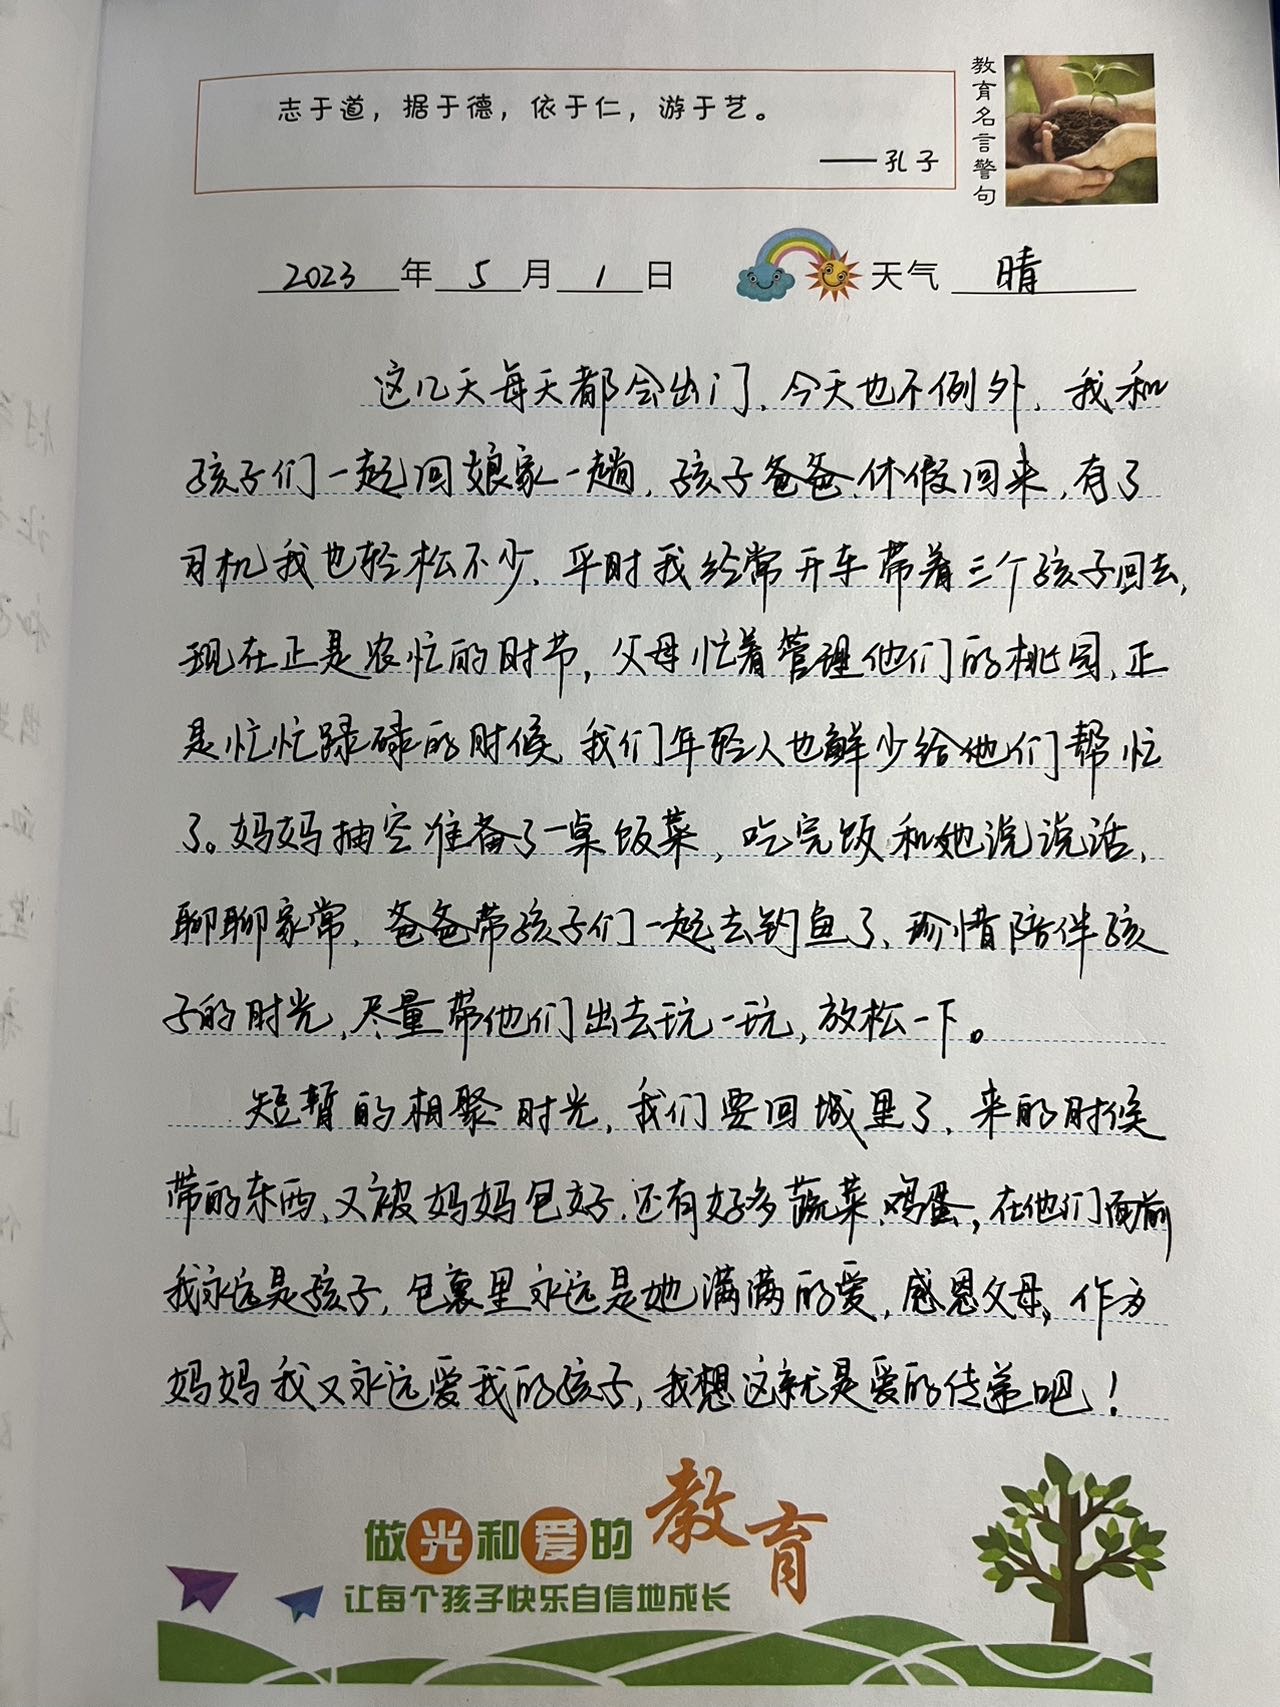 志于道，据于德，依于仁，游于艺。
——孔子
教育名言警句
2023年5月1日 天气 晴
这几天每天都会出门，今天也不例外，我和
孩子们一起回娘家一趟，孩子爸爸休假回来，有了
司机我也轻松不少，平时我经常开车带着三个孩子回去，
现在正是农忙的时节，父母忙着管理他们的桃园，正
是忙忙碌碌的时候，我们年轻人也鲜少给他们帮忙
了。妈妈抽空准备了一桌饭菜，吃完饭和她说说话，
聊聊家常，爸爸带孩子们一起去钓鱼了，珍惜陪伴孩
子的时光，尽量带他们出去玩一玩，放松一下。
短暂的相聚时光，我们要回城里了，来的时候
带的东西，又被妈妈包好，还有好多蔬菜、鸡蛋，在他们面前
我永远是孩子，包裹里永远是她满满的爱，感恩父母，作为
妈妈我又永远爱我的孩子，我想这就是爱的传递吧！
做光和爱的教育
让每个孩子快乐自信地成长